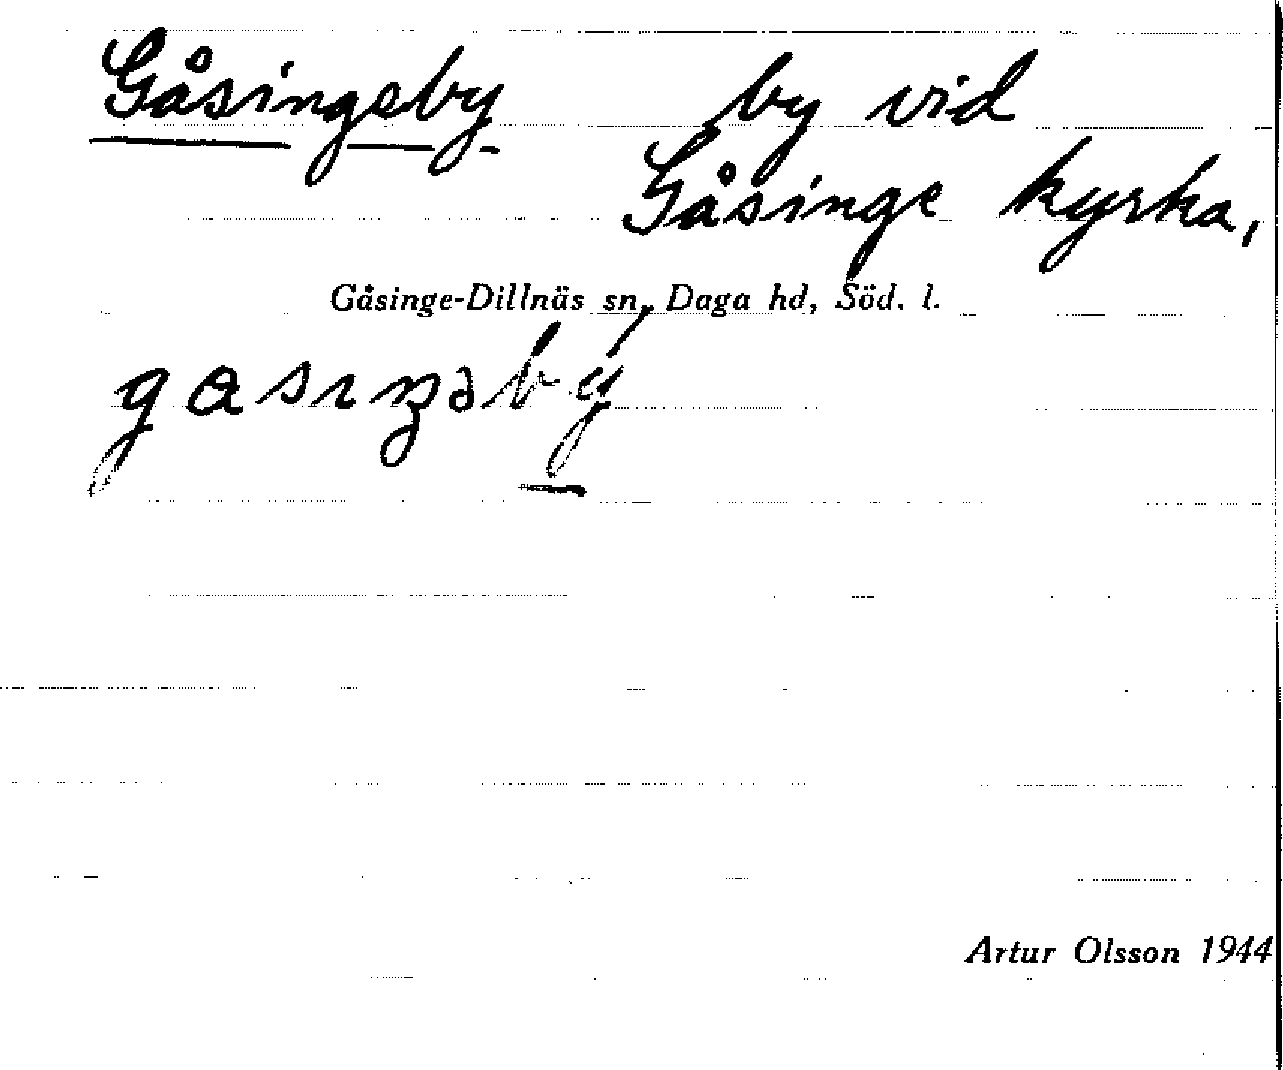 Gåsingeby by vid
Gåsinge kyrka,
Gåsinge-Dillnäs sn, Daga hd, Söd. l.
Artur Olsson 1944